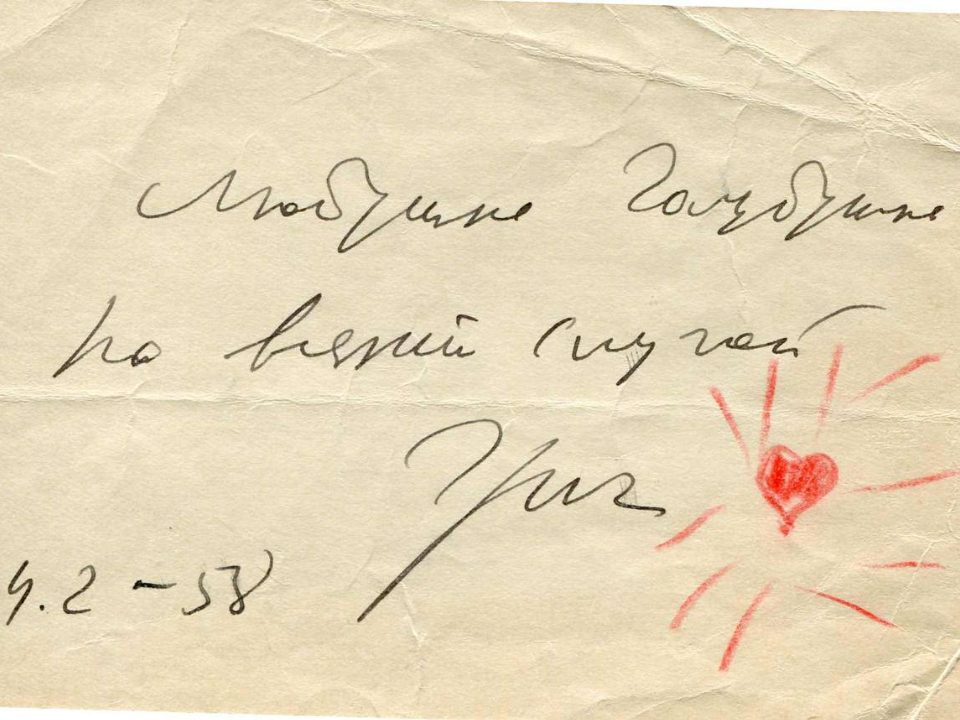 Любушке Голубушке
на всякий случай
Григ
4.2-58